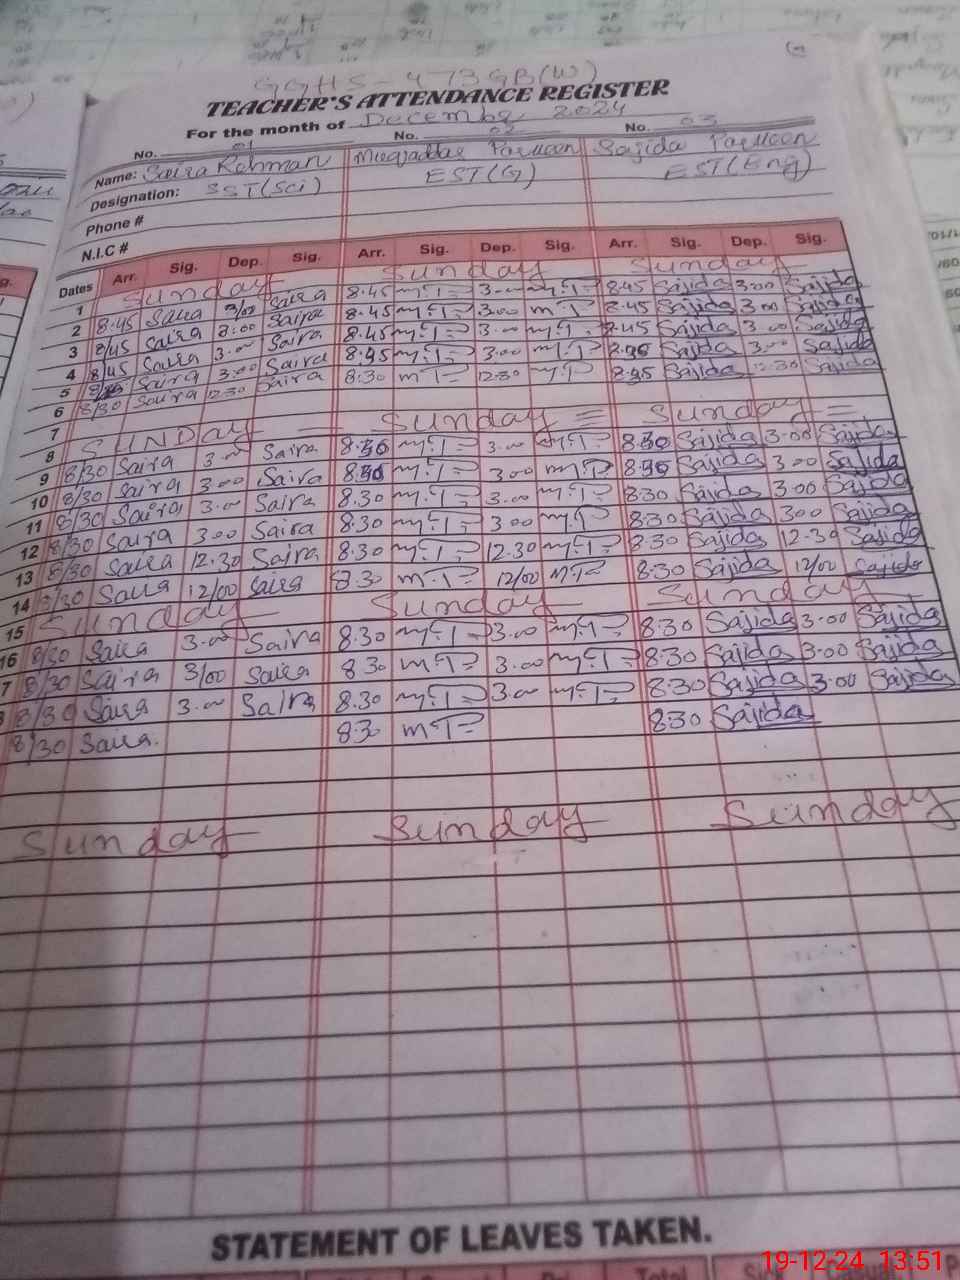 GGHS - 473GB(W)
TEACHER'S ATTENDANCE REGISTER
For the month of December 2024
No. 01 No. 02 No. 03
Name: Saira Rehman Parveen Sajida Parveen
Designation: SST(Sci) EST(G) EST(Eng)
Phone #
N.I.C #
Dates Arr. Sig. Dep. Sig. Arr. Sig. Dep. Sig. Arr. Sig. Dep. Sig.
1 Sunday Sunday Sunday
2 8.45 Saira 3/00 Saira 8.45 m.T 3.00 m.T 8.45 Sajida 3.00 Sajida
3 8/45 Saira 3:00 Saira 8.45 m.T 3.00 m.T 8.45 Sajida 3.00 Sajida
4 8/45 Saira 3.00 Saira 8.45 m.T 3.00 m.T 8.45 Sajida 3.00 Sajida
5 8/45 Saira 3.00 Saira 8.45 m.T 3.00 m.T 8.45 Sajida 3.00 Sajida
6 8/30 Saira 12.30 Saira 8.30 m.T 12.30 m.T 8.45 Sajida 12.30 Sajida
7
8 SUNDay Sunday Sunday
9 8/30 Saira 3.00 Saira 8.30 m.T 3.00 m.T 8.30 Sajida 3.00 Sajida
10 8/30 Saira 3.00 Saira 8.30 m.T 3.00 m.T 8.30 Sajida 3.00 Sajida
11 8/30 Saira 3.00 Saira 8.30 m.T 3.00 m.T 8.30 Sajida 3.00 Sajida
12 8/30 Saira 3.00 Saira 8.30 m.T 3.00 m.T 8.30 Sajida 3.00 Sajida
13 8/30 Saira 12.30 Saira 8.30 m.T 12.30 m.T 8.30 Sajida 12.30 Sajida
14 8/30 Saira 12/00 Saira 8.30 m.T 12/00 m.T 8.30 Sajida 12/00 Sajida
15 Sunday Sunday Sunday
16 8/30 Saira 3.00 Saira 8.30 m.T 3.00 m.T 8.30 Sajida 3.00 Sajida
7 8/30 Saira 3/00 Saira 8.30 m.T 3.00 m.T 8.30 Sajida 3.00 Sajida
8/30 Saira 3.00 Saira 8.30 m.T 3.00 m.T 8.30 Sajida 3.00 Sajida
8/30 Saira. 8.30 m.T 8.30 Sajida
Sunday Sunday Sunday
STATEMENT OF LEAVES TAKEN.
19-12-24 13:51
Total